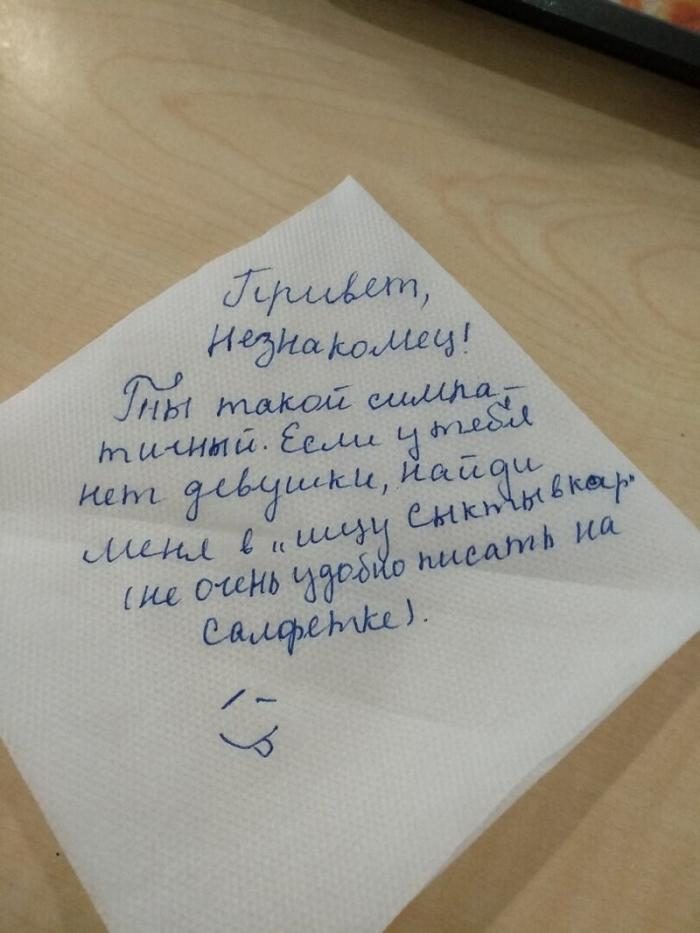 Привет,
незнакомец!
Ты такой симпа-
тичный. Если у тебя
нет девушки, найди
меня в „ищу Сыктывкар"
(не очень удобно писать на
салфетке).